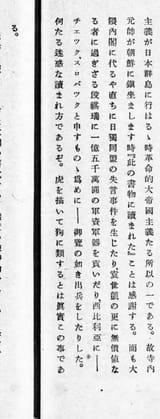 主義が日本群島に行はるゝ時革命的大帝國主義たる所以の一である。故寺内
元帥が朝鮮に鎭座まします時『此の書物に讀まれた』ことは感謝する。而も大
隈内閣に代るや直ちに日獨同盟の失言事件を生じたり袁世凱の更に無價値な
る者に過ぎざる段祺瑞に一億五千萬圓の軍資軍器を貢いだり、西比利亞に――
チェック、スロバックと申すものゝ爲めに――御覽の如き出兵をしたりした。
何たる迷惑な讀まれ方であるぞ。虎を描いて狗に類するとは眞實この事であ
る。